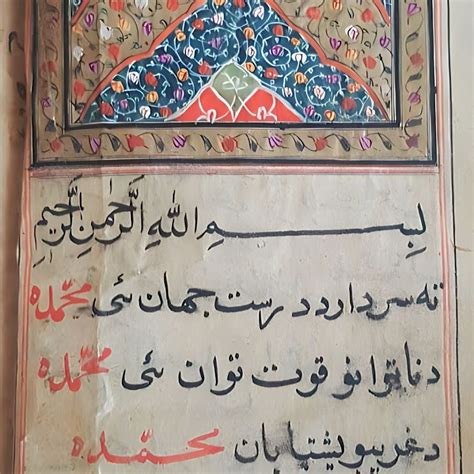 بِسْمِ اللهِ الرَّحْمٰنِ الرَّحِيْمِ
ته سردار د درست جهان ئی محمّده
د ناتوانو قوت توان ئی محمّده
د غریبو محمّده